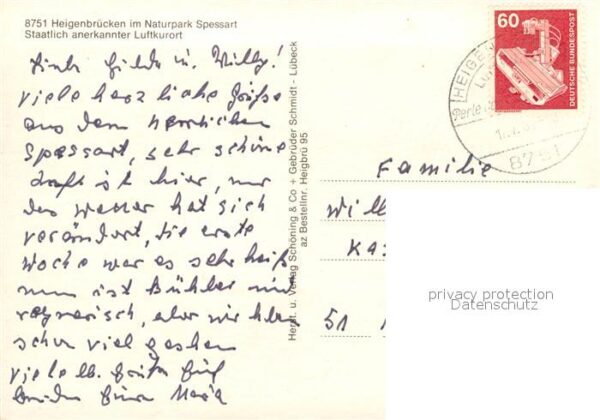 8751 Heigenbrücken im Naturpark Spessart
Staatlich anerkannter Luftkurort
Hilde u. Willy!
viele herzliche Grüße
aus dem herrlichen
Spessart, sehr schöne
Luft ist hier, nur
das Wetter hat sich
verändert, die erste
Woche war es sehr heiß
nun ist kühler und
regnerisch, aber wir haben
schon viel gesehen
viele lb. Grüße
Eure Maria
Herst. u. Verlag Schöning & Co + Gebrüder Schmidt - Lübeck
az Bestellnr. Heigbrü 95
60
DEUTSCHE BUNDESPOST
HEIGEN
8751
Familie
Will
Ka
51
privacy protection
Datenschutz